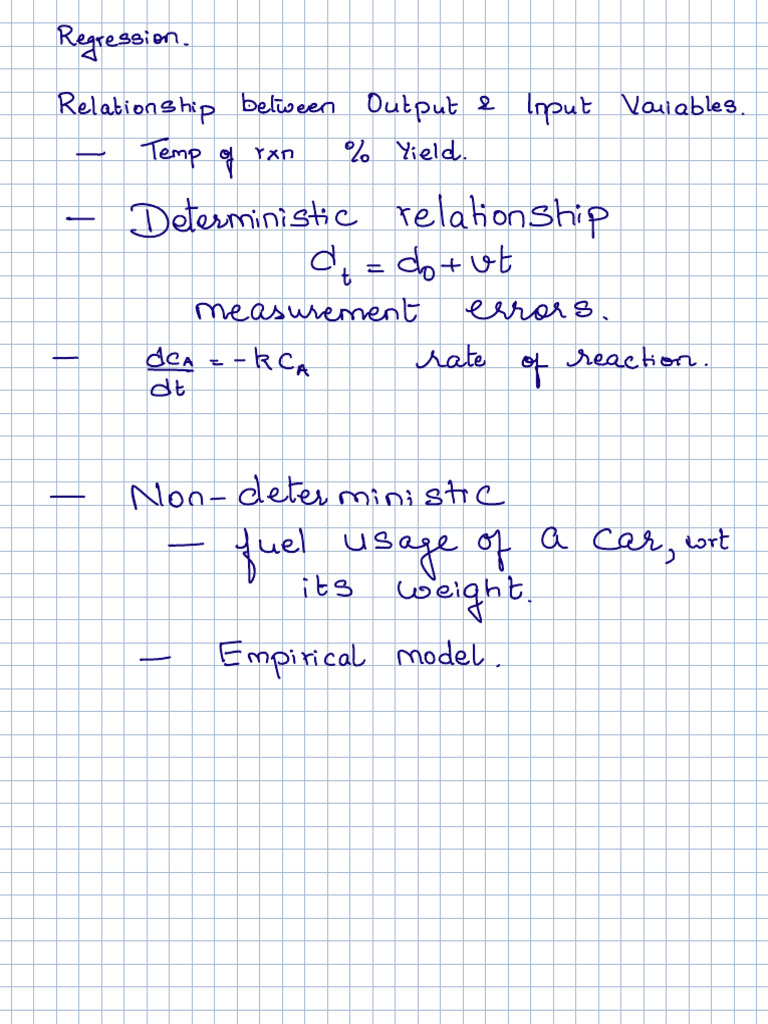 Regression.
Relationship between Output & Input Variables.
— Temp of rxn % Yield.
— Deterministic relationship
d_t = d_0 + vt
measurement errors.
— dC_A/dt = -kC_A rate of reaction.
— Non-deterministic
— fuel usage of a car, wrt
its weight.
— Empirical model.